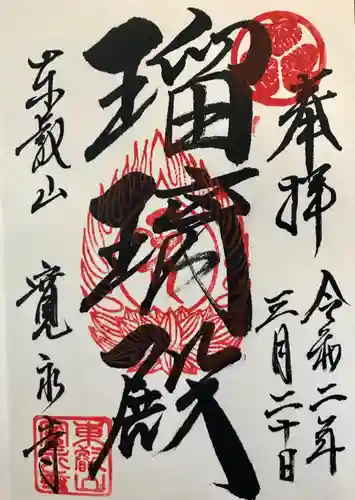 奉拝
令和二年
三月二十日
瑠璃殿
東叡山
寛永寺
東叡山
寛永寺